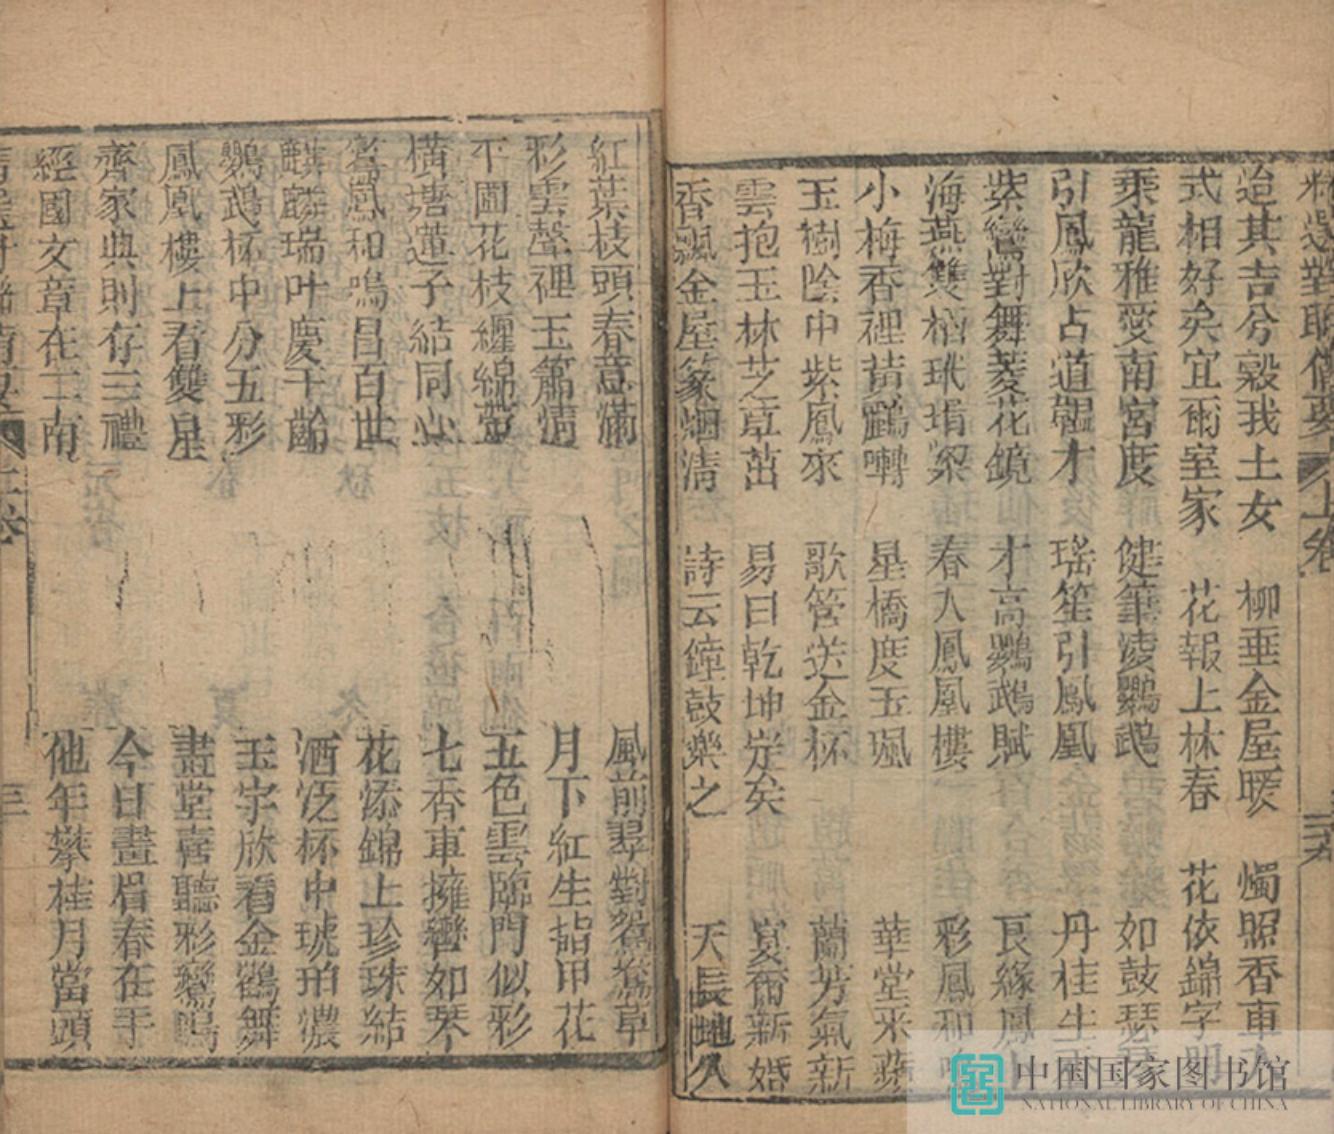 上卷
迨其吉兮穀我士女 柳垂金屋暖 燭照香車
式相好矣宜爾室家 花報上林春 花依錦字
乘龍雅愛南宮度 健筆凌鸚鵡 如鼓瑟
引鳳欣占道韞才 瑶笙引鳳凰 丹桂生
紫鸞對舞菱花鏡 才高鸚鵡賦 良緣鳳
海燕雙栖玳瑁梁 春入鳳凰樓 彩鳳和
小梅香裡黃鸝囀 星橋度玉珮 華堂來
玉樹陰中紫鳳來 歌管送金杯 蘭芳氣新
雲抱玉林芝草茁 易曰乾坤定矣 宴爾新婚
香飄金屋篆烟清 詩云鐘鼓樂之 天長地久
紅葉枝頭春意滿 風前翠對鴛鴦草
彩雲聲裡玉簫情 月下紅生指甲花
平圃花枝纏綿蕚 五色雲臨門似彩
橫塘蓮子結同心 七香車擁轡如琴
鸞鳳和鳴昌百世 花添錦上珍珠結
麒麟瑞叶慶千齡 酒泛杯中琥珀濃
鸚鵡杯中分五彩 玉宇欣看金鶴舞
鳳凰樓上看雙星 畫堂喜聽彩鸞鳴
齊家典則存三禮 今日畫眉春在手
經國文章在二南 他年攀桂月當頭
上卷 三
中国国家图书馆
NATIONAL LIBRARY OF CHINA